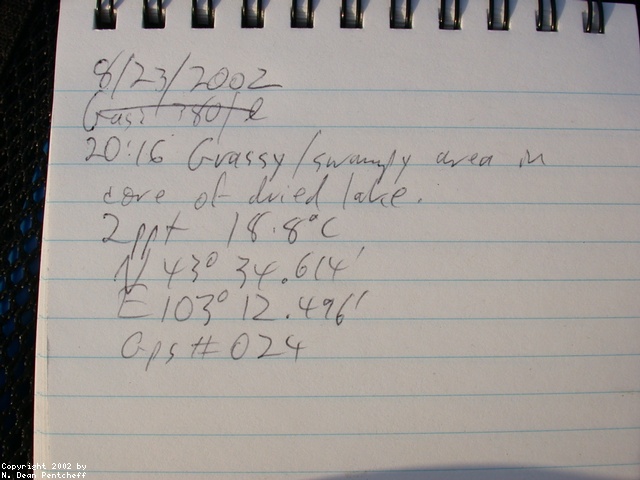 8/23/2002
20:16 Grassy/swampy area in
core of dried lake.
2ppt 18.8°C
N 43° 34.614'
E 103° 12.496'
Gps # 024
Copyright 2002 by
N. Dean Pentcheff